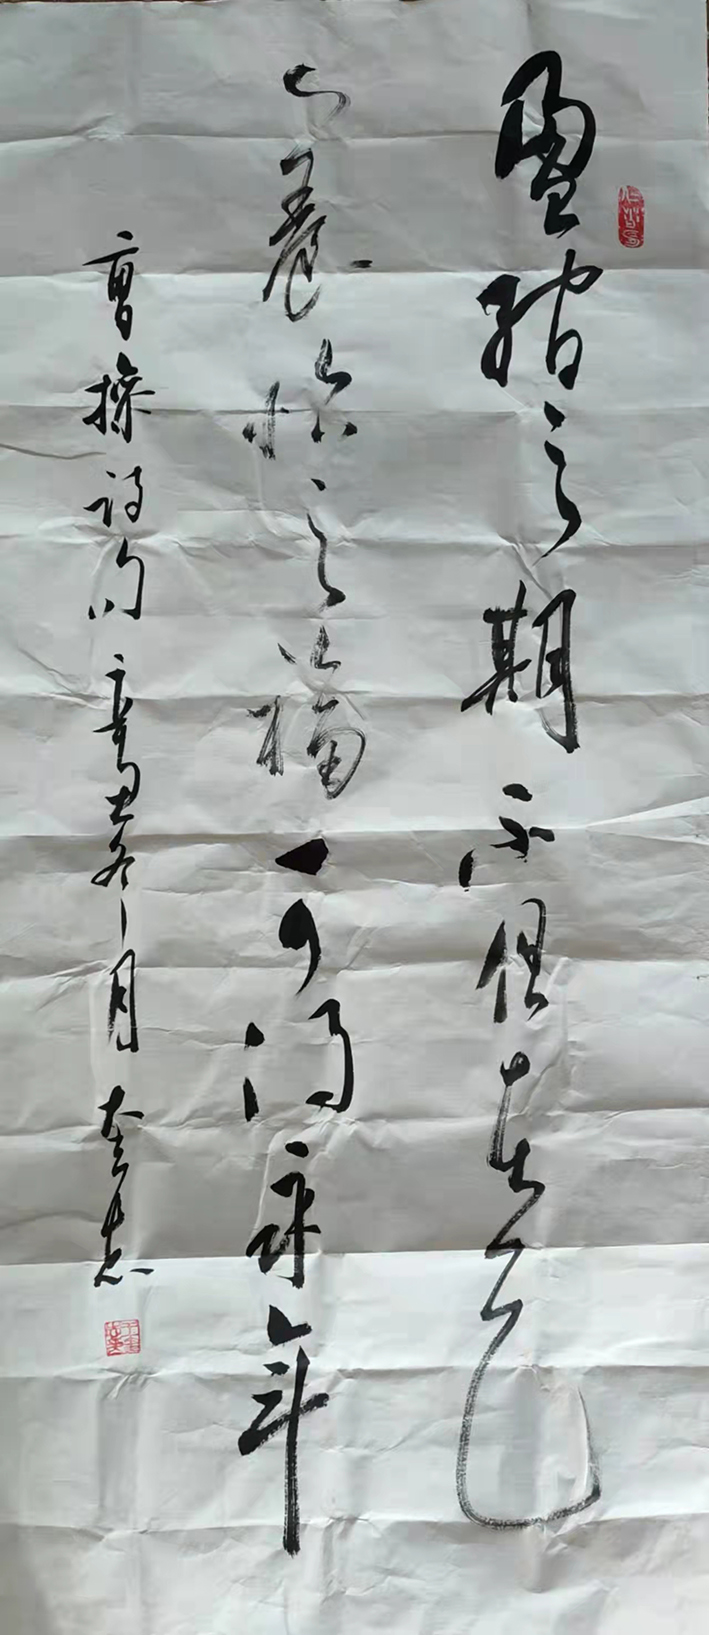 盈缩之期不但在天
養怡之福可得永年
曹操诗句辛丑冬月奎志